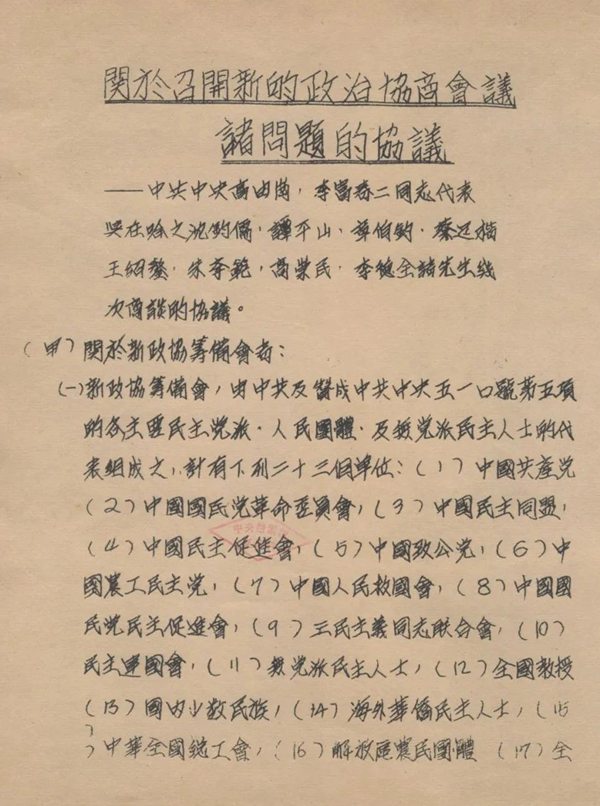 関於召開新的政治協商會議
諸問題的協議
——中共中央高崗,李富春二同志代表
與在哈之沈鈞儒,譚平山,章伯鈞,蔡廷鍇
王紹鏊,朱學範,高崇民,李德全諸先生幾
次商談的協議。
(甲)関於新政協籌備會者:
(一)新政協籌備會,由中共及贊成中共中央五一口號第五項
的各主要民主党派·人民團體·及無党派民主人士的代
表組成之,計有下列二十三個單位:(1)中國共産党
(2)中國國民党革命委員會,(3)中國民主同盟,
(4)中國民主促進會,(5)中國致公党,(6)中
國農工民主党,(7)中國人民救國會,(8)中國國
民党民主促進會,(9)三民主義同志联合會,(10)
民主建國會,(11)無党派民主人士,(12)全國教授
(13)國内少数民族,(14)海外華僑民主人士,(15
)中華全國総工會,(16)解放區農民團體 (17)全